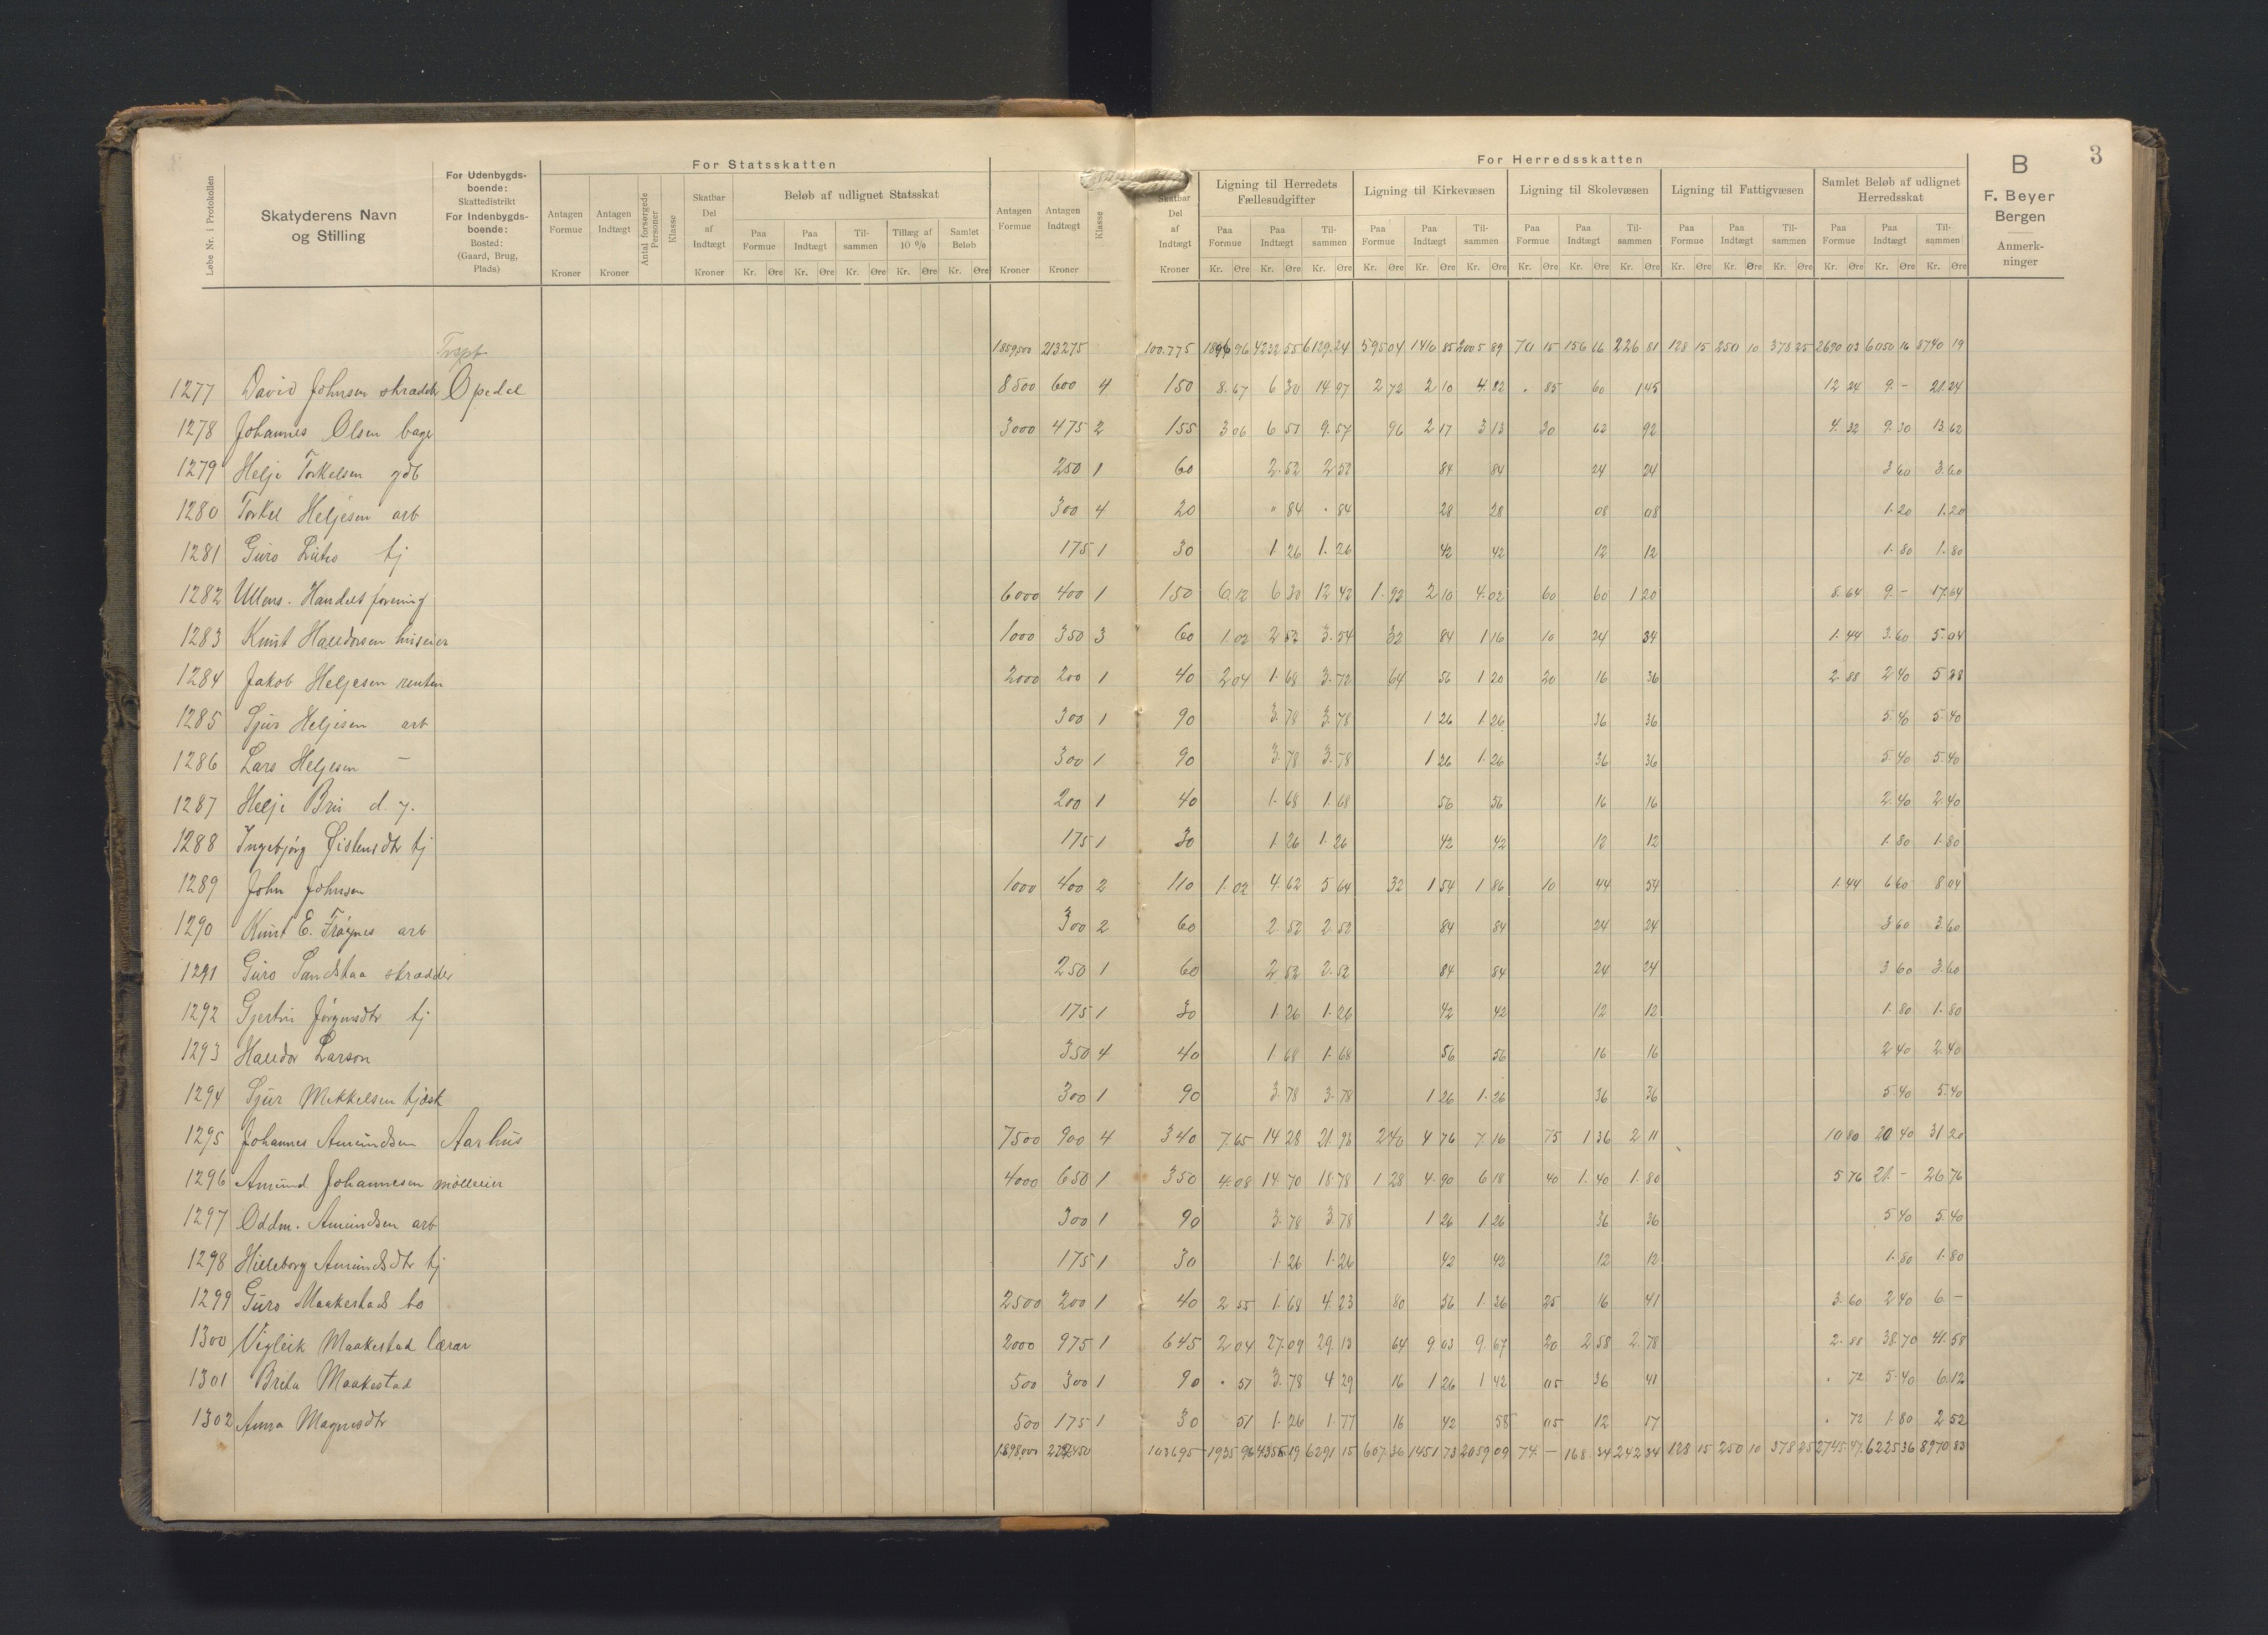 3
B
F. Beyer
Bergen
Anmerk-
ninger
For Statsskatten
For Herredsskatten
Løbe Nr. i Protokollen
Skatyderens Navn
og Stilling
For Udenbygds-
boende:
Skattedistrikt
For Indenbygds-
boende:
Bosted:
(Gaard, Brug,
Plads)
Antagen Formue Kroner
Antagen Indtægt Kroner
Antal forsørgede Personer
Klasse
Skatbar Del af Indtægt Kroner
Beløb af udlignet Statsskat
Paa Formue Kr. Øre
Paa Indtægt Kr. Øre
Til- sammen Kr. Øre
Tillæg af 10 % Kr. Øre
Samlet Beløb Kr. Øre
Antagen Formue Kroner
Antagen Indtægt Kroner
Klasse
Skatbar Del af Indtægt Kroner
Ligning til Herredets Fællesudgifter
Paa Formue Kr. Øre
Paa Indtægt Kr. Øre
Til- sammen Kr. Øre
Ligning til Kirkevæsen
Paa Formue Kr. Øre
Paa Indtægt Kr. Øre
Til- sammen Kr. Øre
Ligning til Skolevæsen
Paa Formue Kr. Øre
Paa Indtægt Kr. Øre
Til- sammen Kr. Øre
Ligning til Fattigvæsen
Paa Formue Kr. Øre
Paa Indtægt Kr. Øre
Til- sammen Kr. Øre
Samlet Beløb af udlignet Herredsskat
Paa Formue Kr. Øre
Paa Indtægt Kr. Øre
Til- sammen Kr. Øre
Trspt 1859500 213275 100.775 1896 96 4232 55 6129.24 595 04 1410 85 2005 89 70 15 156 66 226 81 128 15 250 10 378 25 2690 03 6050 16 8740 19
1277 David Johnsen skrædder Opedal 8500 600 4 150 8.67 6 30 14 97 2 72 2 10 4.82 . 85 60 1 45 12 24 9.- 21.24
1278 Johannes Olsen bager 3000 475 2 155 3 06 6 51 9.57 96 2 17 3 13 30 62 92 4.32 9.30 13.62
1279 Helje Torkelsen gdb 250 1 60 2.52 2 52 84 84 24 24 3 60 3.60
1280 Torkel Heljesen arb 300 4 20 " 84 . 84 28 28 08 08 1.20 1.20
1281 Guro tj 175 1 30 1.26 1.26 42 42 12 12 1.80 1.80
1282 Ullens. Handelsforening 6000 400 1 150 6.12 6 30 12 42 1.92 2 10 4.02 60 60 1 20 8.64 9.- 17.64
1283 Knut Halldorsen huseier 1000 350 3 60 1.02 2 52 3.54 32 84 1 16 10 24 34 1.44 3.60 5.04
1284 Jakob Heljesen renten 2000 200 1 40 2 04 1.68 3.72 64 56 1 20 20 16 36 2.88 2 40 5 28
1285 Sjur Heljesen arb 300 1 90 3.78 3.78 1 26 1.26 36 36 5.40 5.40
1286 Lars Heljesen - 300 1 90 3.78 3.78 1 26 1.26 36 36 5.40 5.40
1287 Helje Bru d. y. 200 1 40 1.68 1.68 56 56 16 16 2.40 2.40
1288 Ingebjørg tj 175 1 30 1.26 1.26 42 42 12 12 1.80 1.80
1289 John Johnsen 1000 400 2 110 1.02 4.62 5 64 32 1 54 1 86 10 44 54 1.44 6 60 8 04
1290 Knut E. Frøynes arb 300 2 60 2.52 2.52 84 84 24 24 3 60 3.60
1291 Guro Sandstaa skrædder 250 1 60 2 52 2.52 84 84 24 24 3 60 3.60
1292 Gjertru Jørgensdtr tj 175 1 30 1.26 1.26 42 42 12 12 1.80 1.80
1293 Halldor Larson 350 4 40 1.68 1.68 56 56 16 16 2 40 2.40
1294 Sjur Mikkelsen 300 1 90 3.78 3.78 1 26 1.26 36 36 5.40 5.40
1295 Johannes Amundsen Aarhus 7500 900 4 340 7.65 14 28 21.93 2 40 4 76 7.16 75 1 36 2 11 10 80 20 40 31 20
1296 Amund Johannesen mølleeier 4000 650 1 350 4.08 14.70 18.78 1 28 4.90 6 18 40 1.40 1.80 5 76 21.- 26 76
1297 Oddm. Amundsen arb 300 1 90 3.78 3.78 1 26 1.26 36 36 5 40 5.40
1298 Hilleborg Amundsdtr tj 175 1 30 1.26 1.26 42 42 12 12 1.80 1.80
1299 Guro Maakestad bo 2500 200 1 40 2 55 1.68 4.23 80 56 1.36 25 16 41 3.60 2 40 6 -
1300 Vigleik Maakestad lærar 2000 975 1 645 2 04 27.09 29.13 64 9 03 9.67 20 2 58 2.78 2.88 38.70 41.58
1301 Brita Maakestad 500 300 1 90 . 51 3.78 4 29 16 1 26 1 42 05 36 41 . 72 5.40 6.12
1302 Anna Magnusdtr 500 175 1 30 51 1.26 1.77 16 42 58 05 12 17 . 72 1 80 2 52
1898,000 103695 1935 96 4355 19 6291 15 607 36 1451 73 2059 09 74.- 168.34 242 34 128 15 250 10 378 25 2745.47 6225 36 8970 83